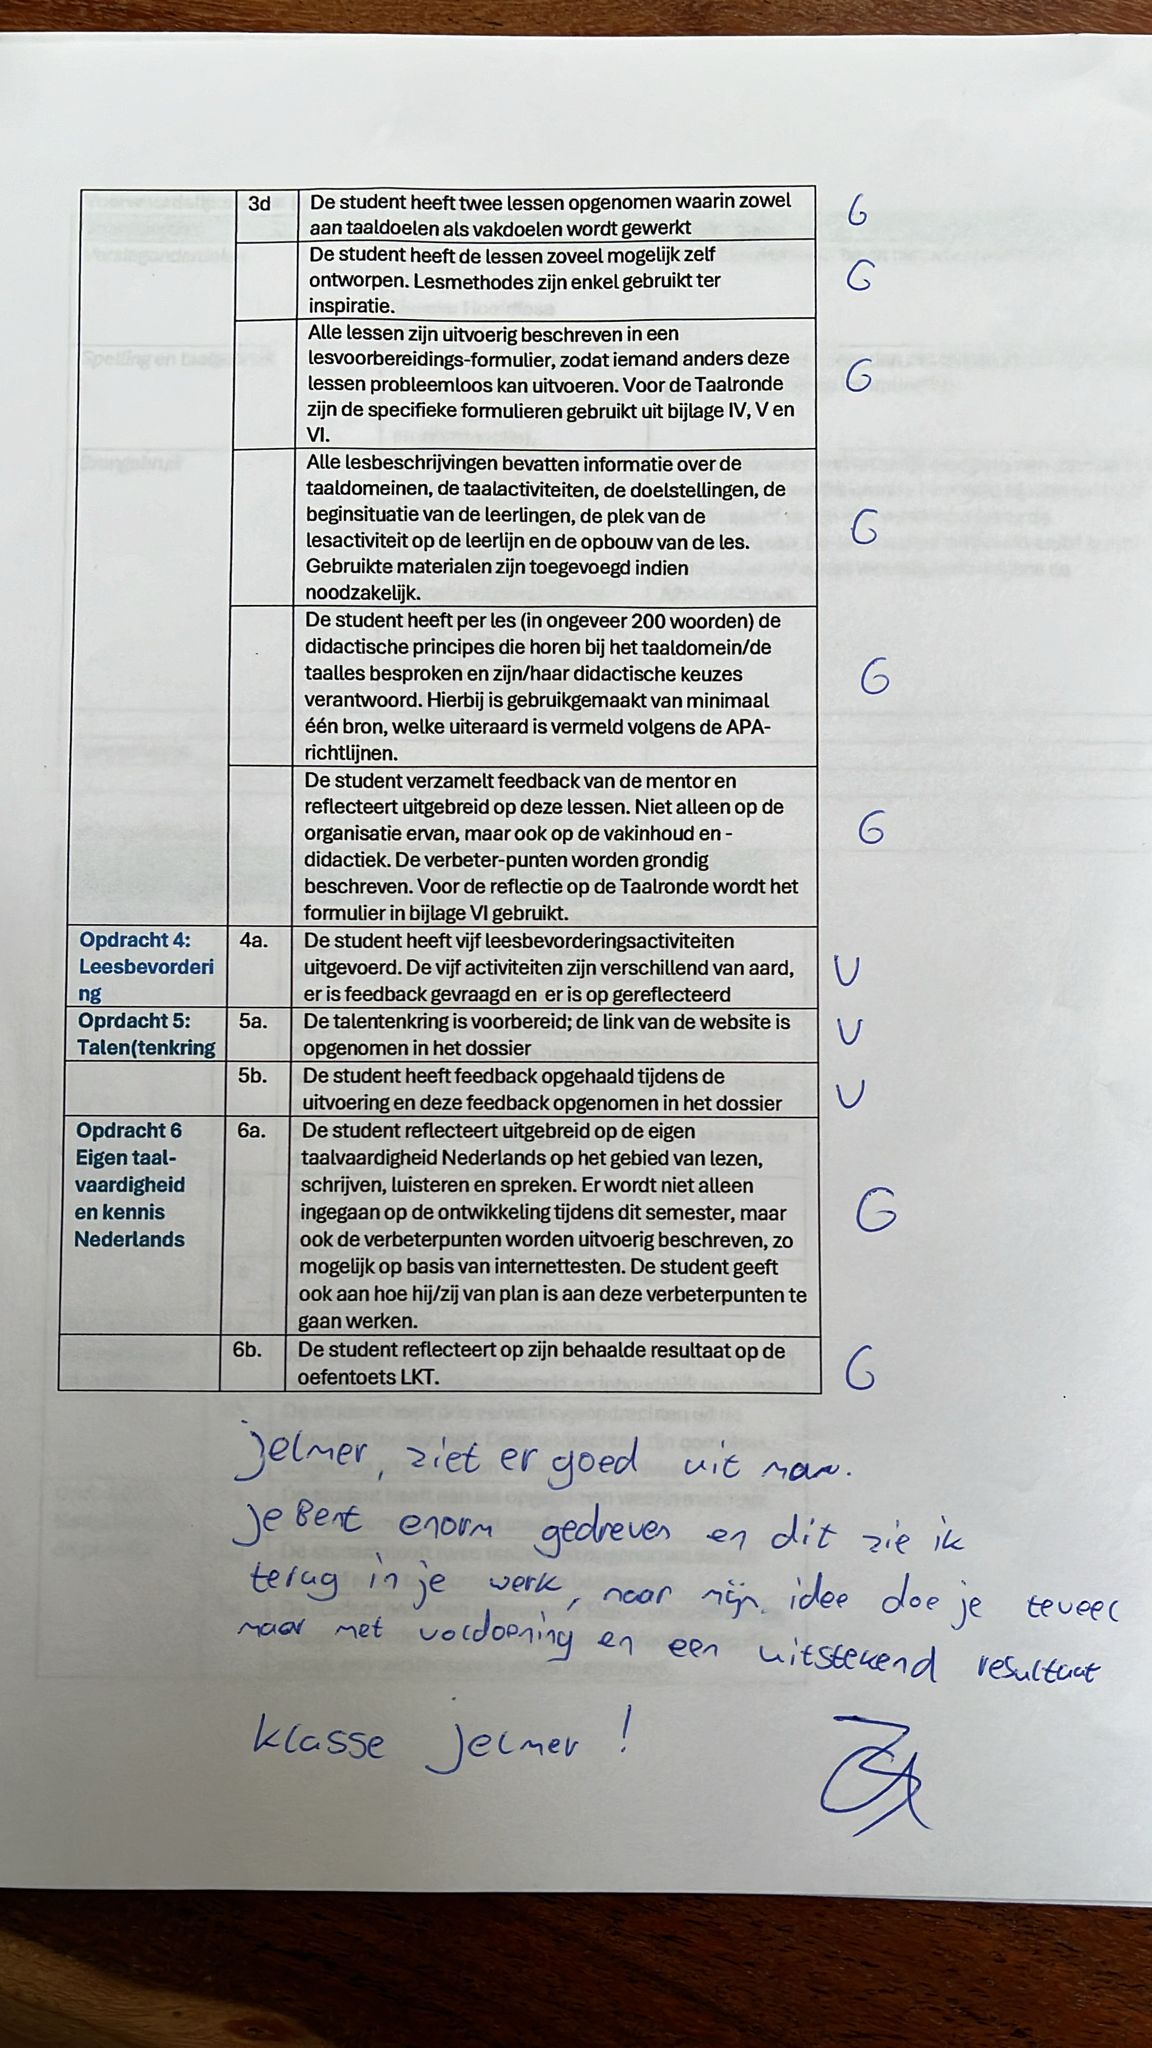 3d De student heeft twee lessen opgenomen waarin zowel G
aan taaldoelen als vakdoelen wordt gewerkt
De student heeft de lessen zoveel mogelijk zelf
ontworpen. Lesmethodes zijn enkel gebruikt ter G
inspiratie.
Alle lessen zijn uitvoerig beschreven in een
lesvoorbereidings-formulier, zodat iemand anders deze
lessen probleemloos kan uitvoeren. Voor de Taalronde G
zijn de specifieke formulieren gebruikt uit bijlage IV, V en
VI.
Alle lesbeschrijvingen bevatten informatie over de
taaldomeinen, de taalactiviteiten, de doelstellingen, de
beginsituatie van de leerlingen, de plek van de
lesactiviteit op de leerlijn en de opbouw van de les. G
Gebruikte materialen zijn toegevoegd indien
noodzakelijk.
De student heeft per les (in ongeveer 200 woorden) de
didactische principes die horen bij het taaldomein/de
taalles besproken en zijn/haar didactische keuzes G
verantwoord. Hierbij is gebruikgemaakt van minimaal
één bron, welke uiteraard is vermeld volgens de APA-
richtlijnen.
De student verzamelt feedback van de mentor en
reflecteert uitgebreid op deze lessen. Niet alleen op de
organisatie ervan, maar ook op de vakinhoud en - G
didactiek. De verbeter-punten worden grondig
beschreven. Voor de reflectie op de Taalronde wordt het
formulier in bijlage VI gebruikt.
Opdracht 4: 4a. De student heeft vijf leesbevorderingsactiviteiten
Leesbevorderi uitgevoerd. De vijf activiteiten zijn verschillend van aard, V
ng er is feedback gevraagd en er is op gereflecteerd
Oprdacht 5: 5a. De talentenkring is voorbereid; de link van de website is V
Talen(tenkring opgenomen in het dossier
5b. De student heeft feedback opgehaald tijdens de V
uitvoering en deze feedback opgenomen in het dossier
Opdracht 6 6a. De student reflecteert uitgebreid op de eigen
Eigen taal- taalvaardigheid Nederlands op het gebied van lezen,
vaardigheid schrijven, luisteren en spreken. Er wordt niet alleen
en kennis ingegaan op de ontwikkeling tijdens dit semester, maar G
Nederlands ook de verbeterpunten worden uitvoerig beschreven, zo
mogelijk op basis van internettesten. De student geeft
ook aan hoe hij/zij van plan is aan deze verbeterpunten te
gaan werken.
6b. De student reflecteert op zijn behaalde resultaat op de G
oefentoets LKT.
Jelmer, ziet er goed uit man.
Je Bent enorm gedreven en dit zie ik
terug in je werk, naar mijn idee doe je teveel
maar met voldoening en een uitstekend resultaat
klasse Jelmer !